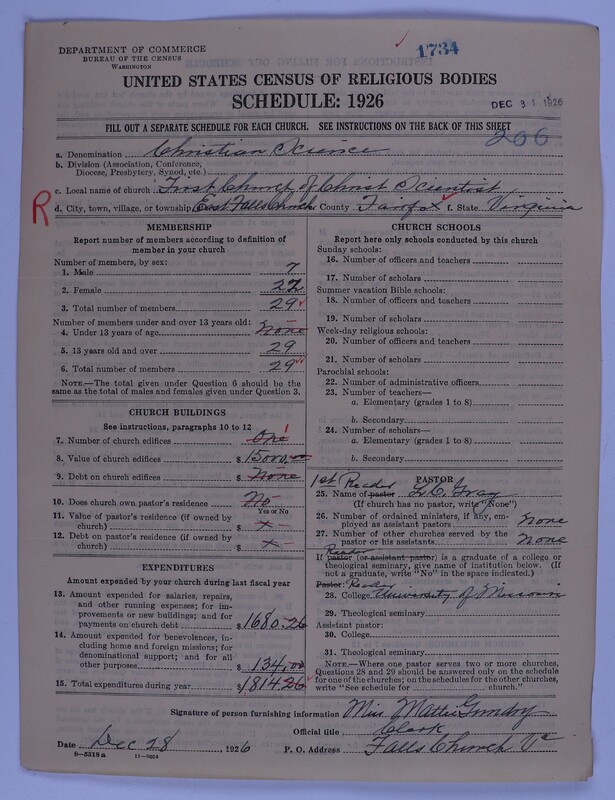 DEPARTMENT OF COMMERCE
BUREAU OF THE CENSUS
WASHINGTON
1734
UNITED STATES CENSUS OF RELIGIOUS BODIES
SCHEDULE: 1926
DEC 31 1926
FILL OUT A SEPARATE SCHEDULE FOR EACH CHURCH. SEE INSTRUCTIONS ON THE BACK OF THIS SHEET
206
a. Denomination Christian Science
b. Division (Association, Conference, Diocese, Presbytery, Synod, etc.)
c. Local name of church First Church of Christ Scientist
R
d. City, town, village, or township East Falls Church County Fairfax State Virginia
MEMBERSHIP
Report number of members according to definition of member in your church
Number of members, by sex:
1. Male 7
2. Female 22
3. Total number of members 29
Number of members under and over 13 years old:
4. Under 13 years of age None
5. 13 years old and over 29
6. Total number of members 29
NOTE.—The total given under Question 6 should be the same as the total of males and females given under Question 3.
CHURCH BUILDINGS
See instructions, paragraphs 10 to 12
7. Number of church edifices One 1
8. Value of church edifices $ 15000.00
9. Debt on church edifices $ None
10. Does church own pastor's residence No
Yes or No
11. Value of pastor's residence (if owned by church) $ x
12. Debt on pastor's residence (if owned by church) $ x
EXPENDITURES
Amount expended by your church during last fiscal year
13. Amount expended for salaries, repairs, and other running expenses; for improvements or new buildings; and for payments on church debt $ 1680.26
14. Amount expended for benevolences, including home and foreign missions; for denominational support; and for all other purposes $ 134.00
15. Total expenditures during year $ 1814.26
CHURCH SCHOOLS
Report here only schools conducted by this church
Sunday schools:
16. Number of officers and teachers
17. Number of scholars
Summer vacation Bible schools:
18. Number of officers and teachers
19. Number of scholars
Week-day religious schools:
20. Number of officers and teachers
21. Number of scholars
Parochial schools:
22. Number of administrative officers
23. Number of teachers—
a. Elementary (grades 1 to 8)
b. Secondary
24. Number of scholars—
a. Elementary (grades 1 to 8)
b. Secondary
PASTOR
1st Reader
25. Name of pastor Gray
(If church has no pastor, write "None")
26. Number of ordained ministers, if any, employed as assistant pastors None
27. Number of other churches served by the pastor or his assistants None
Reader
If pastor (or assistant pastor) is a graduate of a college or theological seminary, give name of institution below. (If not a graduate, write "No" in the space indicated.)
Pastor: Reader
28. College University of Missouri
29. Theological seminary
Assistant pastor:
30. College
31. Theological seminary
NOTE.—Where one pastor serves two or more churches, Questions 28 and 29 should be answered only on the schedule for one of the churches; on the schedules for the other churches, write "See schedule for church."
Signature of person furnishing information Miss Mattie Gundry
Official title Clerk
Date Dec 28, 1926
P. O. Address Falls Church Va
8-5318a 11-9054